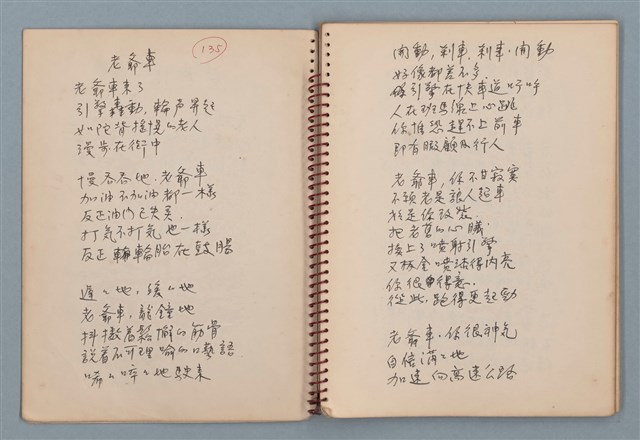 135
老爺車
老爺車來了
引擎轟動，輪声昇起
如陀背搖幌的老人
漫步在街中
慢吞吞地，老爺車
加油不加油都一樣
反正油門已失灵
打气不打气也一樣
反正輪胎在鼓腸
遲々地，緩々地
老爺車，龍鐘地
抖擻着鬆懈的筋骨
説着不可理喻的囈語
唏々啐々地駛來
開動，刹車，刹車，開動
好像都差不多
引擎在快車道吁吁
人在班馬線上心跳
你惟恐趕不上前車
即有暇顧及行人
老爺車，你不甘寂寞
不願老是讓人超車
於是你改裝
把老舊的心臟
接上了噴射引擎
又板金噴漆得内亮
你很得意
從此，跑得更起勁
老爺車，你很神气
自信滿々地
加速向高速公路